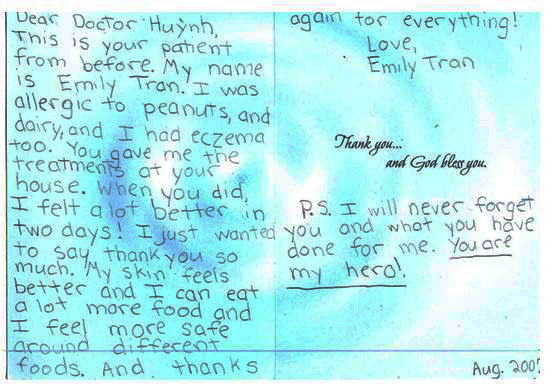 Dear Doctor Huỳnh,
This is your patient
from before. My name
is Emily Tran. I was
allergic to peanuts, and
dairy, and I had eczema
too. You gave me the
treatments at your
house. When you did,
I felt a lot better in
two days! I just wanted
to say thank you so
much. My skin feels
better and I can eat
a lot more food and
I feel more safe
around different
foods. And thanks
again for everything!
Love,
Emily Tran
Thank you...
and God bless you.
P.S. I will never forget
you and what you have
done for me. You are
my hero!
Aug. 2007